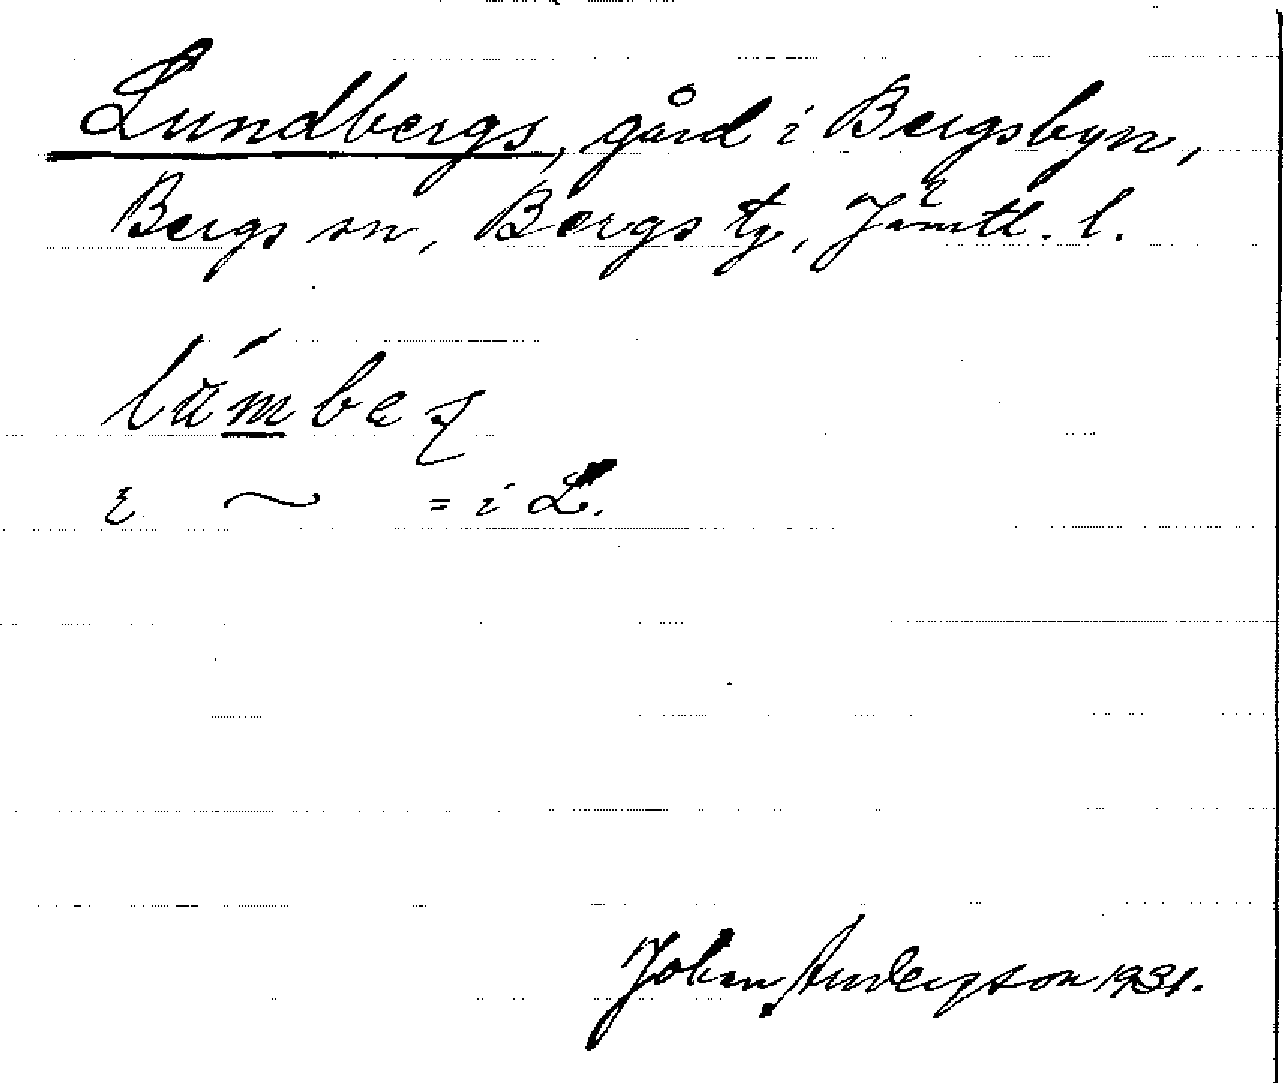 Lundbergs, gård i Bergsbyn,
Bergs sn, Bergs tg, Jämtl. l.
ɩ ~ = i L.
Johan Anderson 1931.